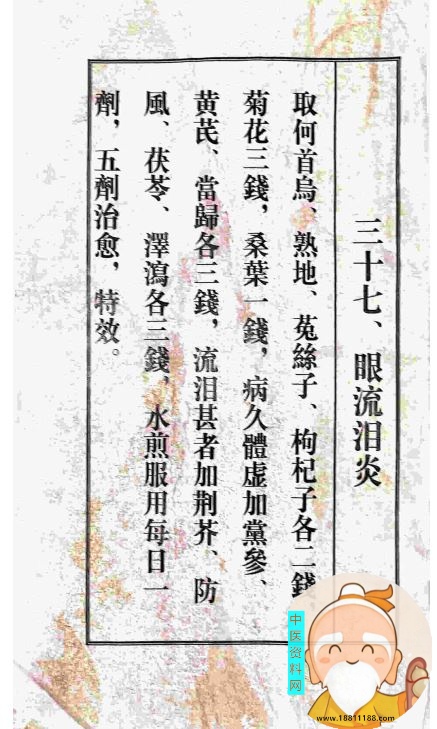 三十七、眼流泪炎
取何首烏、熟地、菟絲子、枸杞子各二錢
菊花三錢，桑葉一錢，病久體虛加黨參、
黄芪、當歸各三錢，流泪甚者加荆芥、防
風、茯苓、澤瀉各三錢，水煎服用每日一
劑，五劑治愈，特效。
中医资料网
www.18811188.com